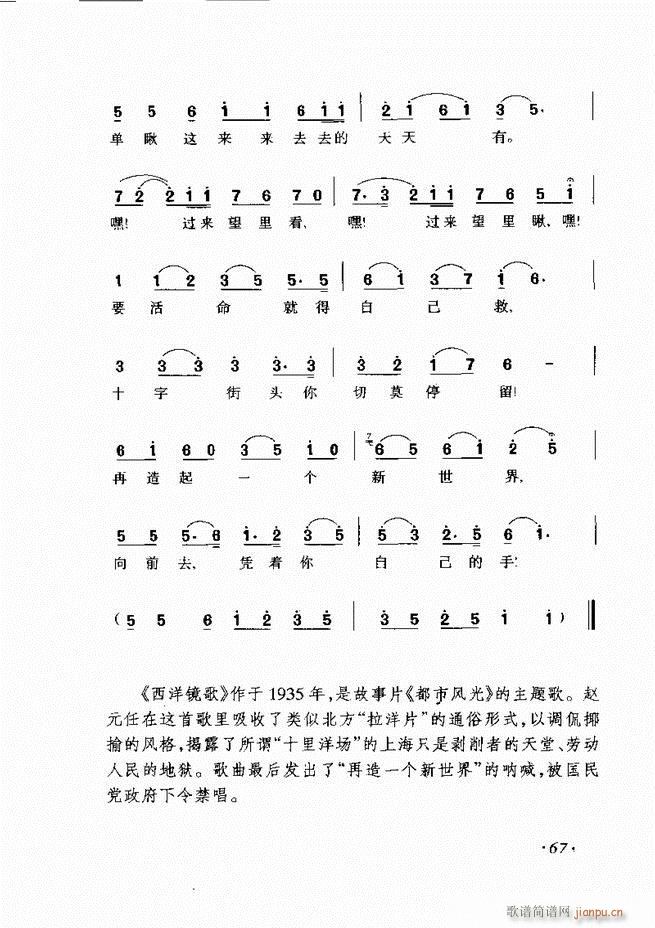 5 5 6 i i 6 i i | 2 i 6 i 3 5· |
单瞅这来来去去的 天天 有。
7 2 2 i i 7 6 7 0 | 7· 3 2 i i 7 6 5 i |
嘿! 过来望里看, 嘿! 过来望里瞅,嘿!
1 i 2 3 5 5· 5 | 6 i 3 7 i 6· |
要活 命 就得 自 己 救,
3 3 3 3 3· 3 | 3 2 i 7 6 – |
十字 街头你 切莫停 留!
6 i 6 0 3 5 i 0 | 6 5 6 i 2 5 |
再造起 一 个 新 世 界,
5 5 5· 6 i· 2 3 5 | 5 3 2· 5 6 i· |
向前去, 凭着你 自 己的手!
(5 5 6 i 2 3 5 | 3 5 2 5 i i)
《西洋镜歌》作于1935年,是故事片《都市风光》的主题歌。赵
元任在这首歌里吸收了类似北方“拉洋片”的通俗形式,以调侃揶
揄的风格,揭露了所谓“十里洋场”的上海只是剥削者的天堂、劳动
人民的地狱。歌曲最后发出了“再造一个新世界”的呐喊,被国民
党政府下令禁唱。
·67·
歌谱简谱网 jianpu.cn